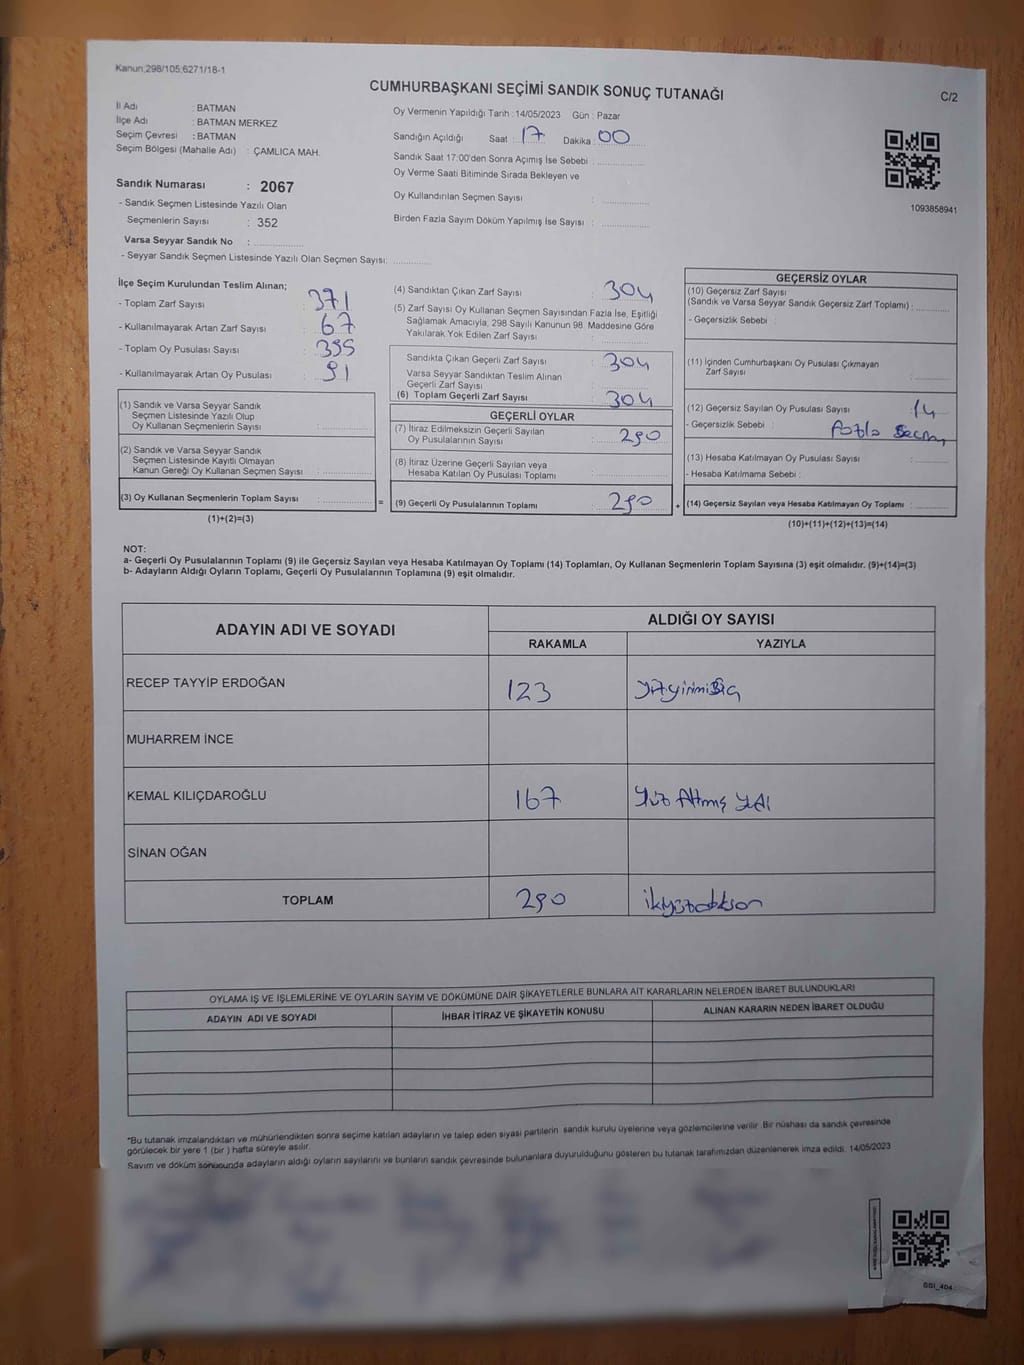 Kanun:298/105;6271/18-1
CUMHURBAŞKANI SEÇİMİ SANDIK SONUÇ TUTANAĞI
C/2
İl Adı : BATMAN
İlçe Adı : BATMAN MERKEZ
Seçim Çevresi : BATMAN
Seçim Bölgesi (Mahalle Adı) : ÇAMLICA MAH.
Sandık Numarası : 2067
- Sandık Seçmen Listesinde Yazılı Olan
Seçmenlerin Sayısı : 352
Varsa Seyyar Sandık No :
- Seyyar Sandık Seçmen Listesinde Yazılı Olan Seçmen Sayısı:
Oy Vermenin Yapıldığı Tarih : 14/05/2023 Gün : Pazar
Sandığın Açıldığı Saat : 17 Dakika : 00
Sandık Saat 17:00'den Sonra Açımış İse Sebebi :
Oy Verme Saati Bitiminde Sırada Bekleyen ve
Oy Kullandırılan Seçmen Sayısı :
Birden Fazla Sayım Döküm Yapılmış İse Sayısı :
1093858941
İlçe Seçim Kurulundan Teslim Alınan;
- Toplam Zarf Sayısı : 371
- Kullanılmayarak Artan Zarf Sayısı : 67
- Toplam Oy Pusulası Sayısı : 395
- Kullanılmayarak Artan Oy Pusulası : 91
(1) Sandık ve Varsa Seyyar Sandık
Seçmen Listesinde Yazılı Olup
Oy Kullanan Seçmenlerin Sayısı :
(2) Sandık ve Varsa Seyyar Sandık
Seçmen Listesinde Kayıtlı Olmayan
Kanun Gereği Oy Kullanan Seçmen Sayısı :
(3) Oy Kullanan Seçmenlerin Toplam Sayısı : =
(1)+(2)=(3)
(4) Sandıktan Çıkan Zarf Sayısı : 304
(5) Zarf Sayısı Oy Kullanan Seçmen Sayısından Fazla İse, Eşitliği
Sağlamak Amacıyla, 298 Sayılı Kanunun 98. Maddesine Göre
Yakılarak Yok Edilen Zarf Sayısı :
Sandıkta Çıkan Geçerli Zarf Sayısı : 304
Varsa Seyyar Sandıktan Teslim Alınan
Geçerli Zarf Sayısı :
(6) Toplam Geçerli Zarf Sayısı : 304
GEÇERLİ OYLAR
(7) İtiraz Edilmeksizin Geçerli Sayılan
Oy Pusulalarının Sayısı : 290
(8) İtiraz Üzerine Geçerli Sayılan veya
Hesaba Katılan Oy Pusulası Toplamı :
(9) Geçerli Oy Pusulalarının Toplamı : 290 +
GEÇERSİZ OYLAR
(10) Geçersiz Zarf Sayısı
(Sandık ve Varsa Seyyar Sandık Geçersiz Zarf Toplamı) :
- Geçersizlik Sebebi :
(11) İçinden Cumhurbaşkanı Oy Pusulası Çıkmayan
Zarf Sayısı :
(12) Geçersiz Sayılan Oy Pusulası Sayısı : 14
- Geçersizlik Sebebi : fazla
(13) Hesaba Katılmayan Oy Pusulası Sayısı :
- Hesaba Katılmama Sebebi :
(14) Geçersiz Sayılan veya Hesaba Katılmayan Oy Toplamı :
(10)+(11)+(12)+(13)=(14)
NOT:
a- Geçerli Oy Pusulalarının Toplamı (9) ile Geçersiz Sayılan veya Hesaba Katılmayan Oy Toplamı (14) Toplamları, Oy Kullanan Seçmenlerin Toplam Sayısına (3) eşit olmalıdır. (9)+(14)=(3)
b- Adayların Aldığı Oyların Toplamı, Geçerli Oy Pusulalarının Toplamına (9) eşit olmalıdır.
ADAYIN ADI VE SOYADI ALDIĞI OY SAYISI
RAKAMLA YAZIYLA
RECEP TAYYİP ERDOĞAN 123
MUHARREM İNCE
KEMAL KILIÇDAROĞLU 167 Yüz Altmış
SİNAN OĞAN
TOPLAM 290
OYLAMA İŞ VE İŞLEMLERİNE VE OYLARIN SAYIM VE DÖKÜMÜNE DAİR ŞİKAYETLERLE BUNLARA AİT KARARLARIN NELERDEN İBARET BULUNDUKLARI
ADAYIN ADI VE SOYADI İHBAR İTİRAZ VE ŞİKAYETİN KONUSU ALINAN KARARIN NEDEN İBARET OLDUĞU
*Bu tutanak imzalandıktan ve mühürlendikten sonra seçime katılan adayların ve talep eden siyasi partilerin sandık kurulu üyelerine veya gözlemcilerine verilir. Bir nüshası da sandık çevresinde
görülecek bir yere 1 (bir ) hafta süreyle asılır.
Sayım ve döküm sonucunda adayların aldığı oyların sayılarını ve bunların sandık çevresinde bulunanlara duyurulduğunu gösteren bu tutanak tarafımızdan düzenlenerek imza edildi. 14/05/2023